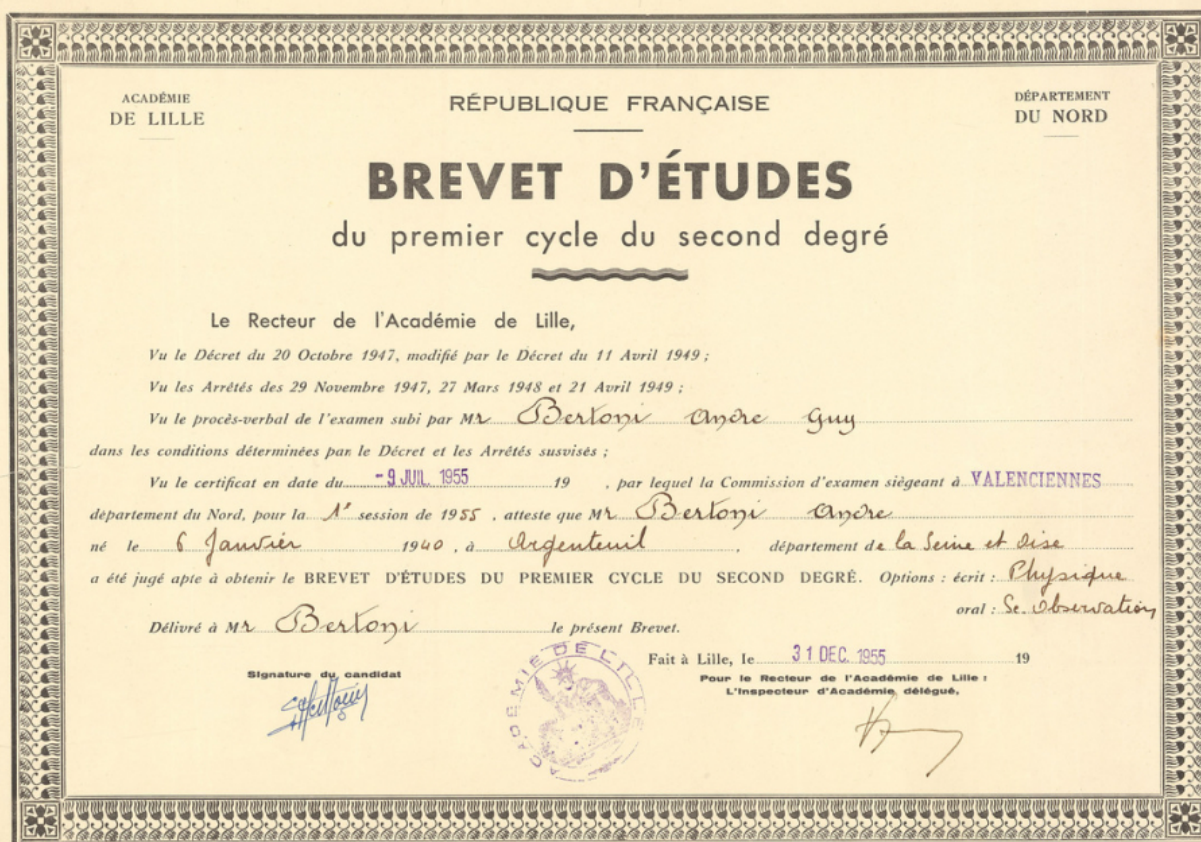 ACADÉMIE
DE LILLE
RÉPUBLIQUE FRANÇAISE
DÉPARTEMENT
DU NORD
BREVET D'ÉTUDES
du premier cycle du second degré
Le Recteur de l'Académie de Lille,
Vu le Décret du 20 Octobre 1947, modifié par le Décret du 11 Avril 1949 ;
Vu les Arrêtés des 29 Novembre 1947, 27 Mars 1948 et 21 Avril 1949 ;
Vu le procès-verbal de l'examen subi par Mr Bertoni Andre Guy
dans les conditions déterminées par le Décret et les Arrêtés susvisés ;
Vu le certificat en date du -9 JUIL. 1955 19 , par lequel la Commission d'examen siégeant à VALENCIENNES
département du Nord, pour la 1e session de 1955 , atteste que Mr Bertoni Andre
né le 6 Janvier 1940 , à Argenteuil , département de la Seine et Oise
a été jugé apte à obtenir le BREVET D'ÉTUDES DU PREMIER CYCLE DU SECOND DEGRÉ. Options : écrit : Physique
oral : Sc. Observation
Délivré à Mr Bertoni le présent Brevet.
Fait à Lille, le 31 DEC. 1955 19
Signature du candidat
Pour le Recteur de l'Académie de Lille :
L'Inspecteur d'Académie délégué,
ACADÉMIE DE LILLE